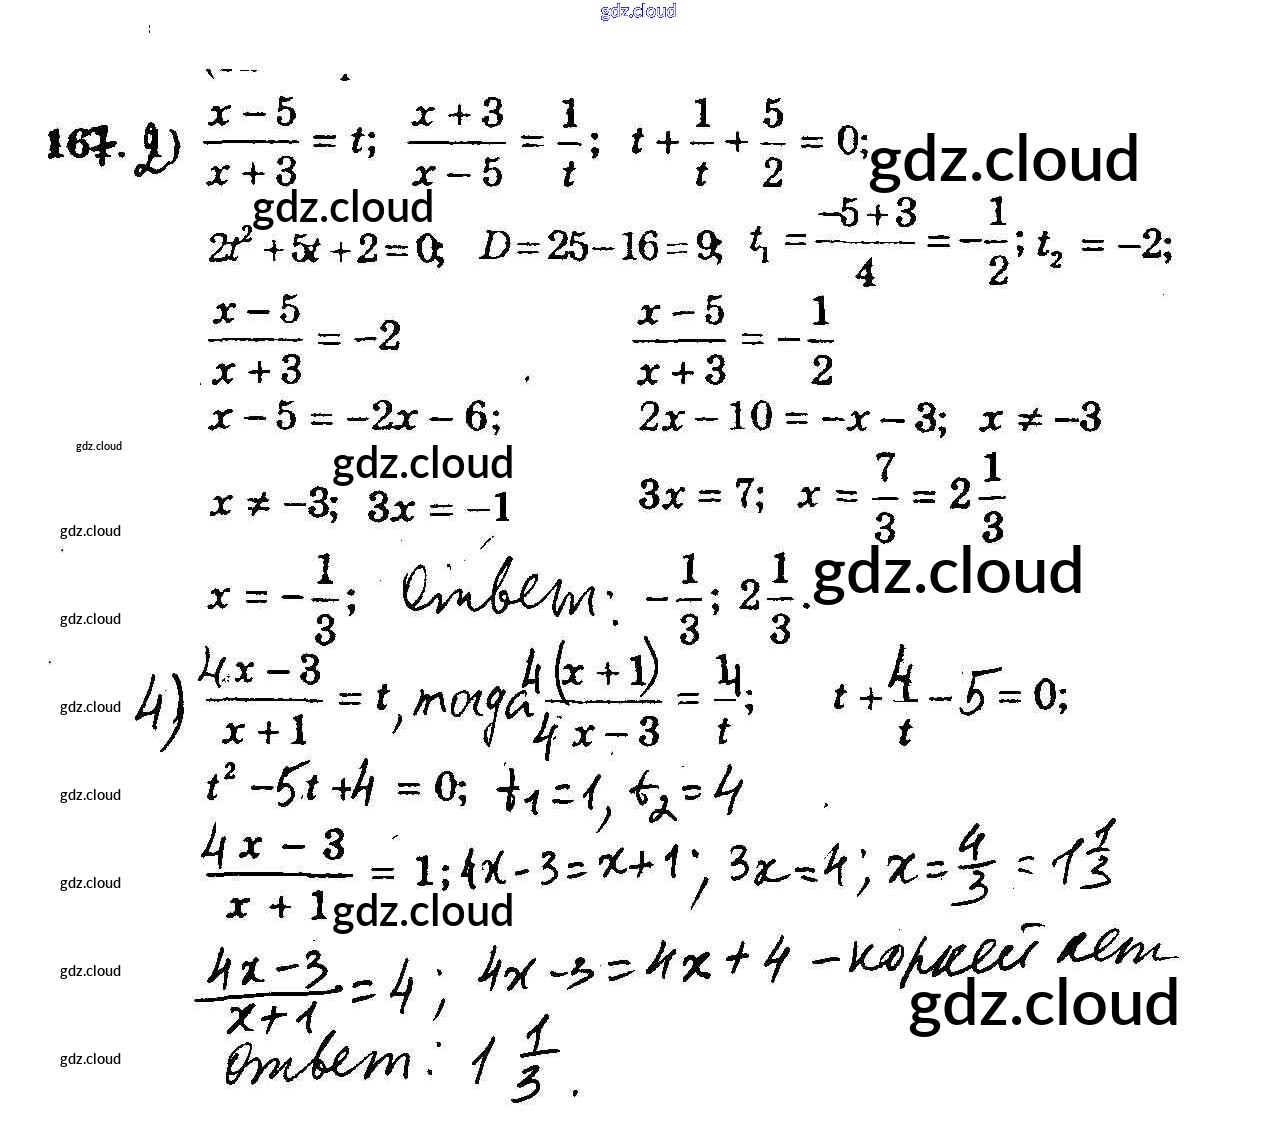 gdz.cloud
167. 2) (x − 5)/(x + 3) = t; (x + 3)/(x − 5) = 1/t; t + 1/t + 5/2 = 0; gdz.cloud
gdz.cloud
2t² + 5t + 2 = 0; D = 25 − 16 = 9; t₁ = (−5 + 3)/4 = −1/2; t₂ = −2;
(x − 5)/(x + 3) = −2 (x − 5)/(x + 3) = −1/2
x − 5 = −2x − 6; 2x − 10 = −x − 3; x ≠ −3
gdz.cloud gdz.cloud
x ≠ −3; 3x = −1 3x = 7; x = 7/3 = 2 1/3
gdz.cloud
x = −1/3; Ответ: −1/3; 2 1/3. gdz.cloud
gdz.cloud
4) (4x − 3)/(x + 1) = t, тогда 4(x + 1)/(4x − 3) = 4/t; t + 4/t − 5 = 0;
gdz.cloud
t² − 5t + 4 = 0; t₁ = 1, t₂ = 4
gdz.cloud
(4x − 3)/(x + 1) = 1; 4x − 3 = x + 1; 3x = 4; x = 4/3 = 1 1/3
gdz.cloud gdz.cloud
(4x − 3)/(x + 1) = 4; 4x − 3 = 4x + 4 – корней нет
gdz.cloud gdz.cloud
Ответ: 1 1/3.
gdz.cloud